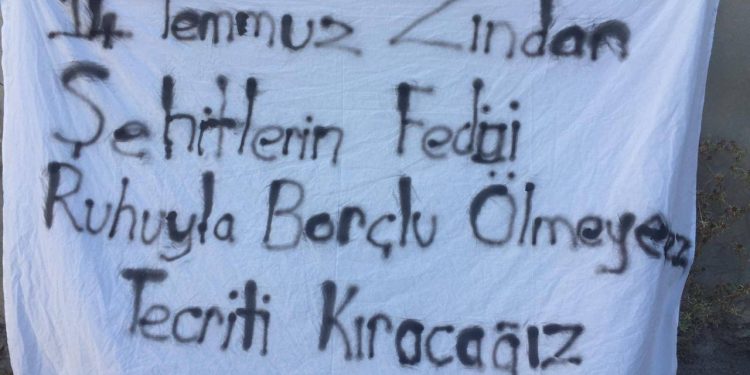 14 Temmuz Zindan
Şehitlerin Fedai
Ruhuyla Borçlu Ölmeyeez
Tecriti Kıracağız